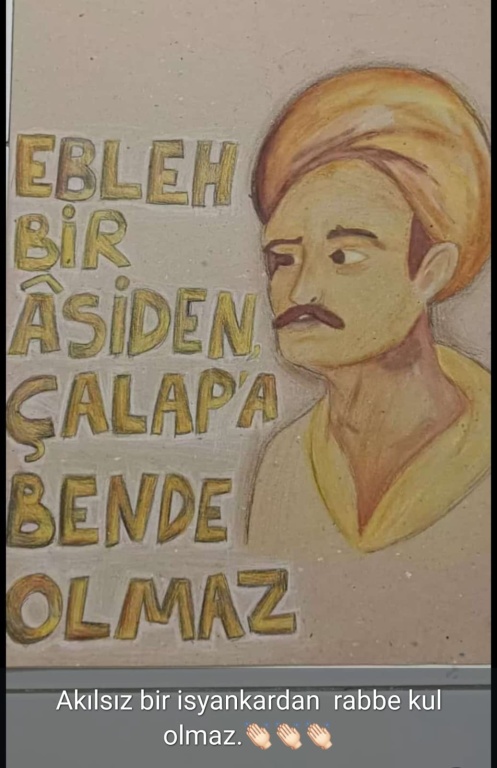 EBLEH
BİR
ÂSİDEN,
ÇALAP'A
BENDE
OLMAZ
Akılsız bir isyankardan rabbe kul
olmaz.👏🏻👏🏻👏🏻